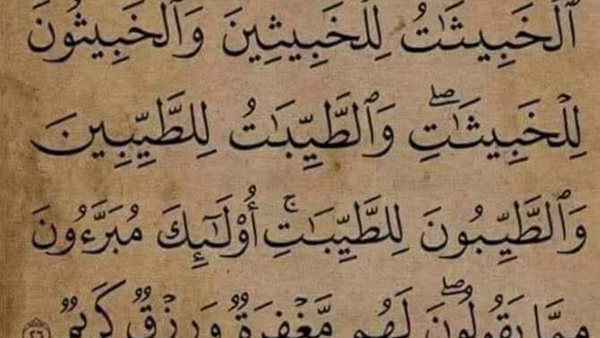 ٱلْخَبِيثَٰتُ لِلْخَبِيثِينَ وَٱلْخَبِيثُونَ
لِلْخَبِيثَٰتِۖ وَٱلطَّيِّبَٰتُ لِلطَّيِّبِينَ
وَٱلطَّيِّبُونَ لِلطَّيِّبَٰتِۚ أُو۟لَٰٓئِكَ مُبَرَّءُونَ
مِمَّا يَقُولُونَۖ لَهُم مَّغْفِرَةٌ وَرِزْقٌ كَرِيمٌ ٢٦